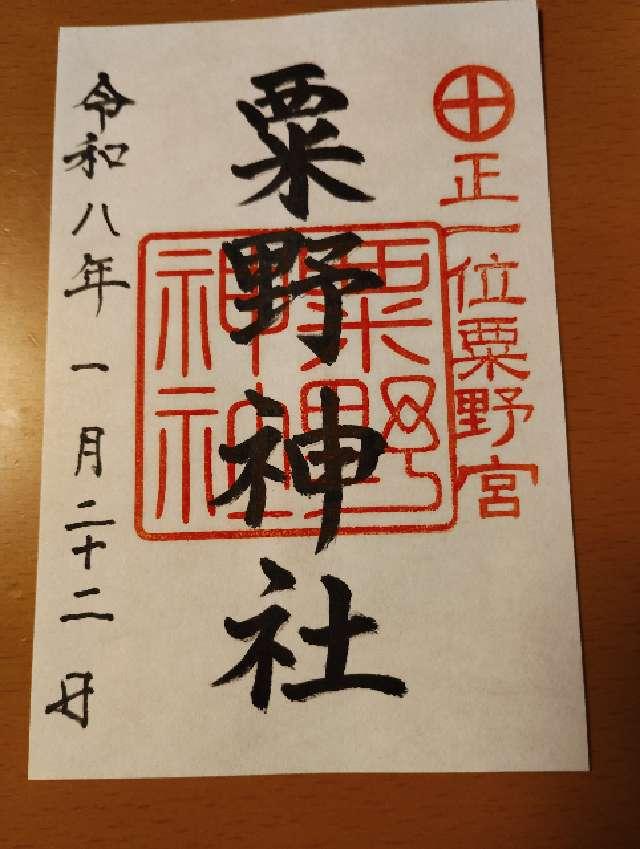 正一位粟野宮
粟野神社
粟野神社
令和八年一月二十二日